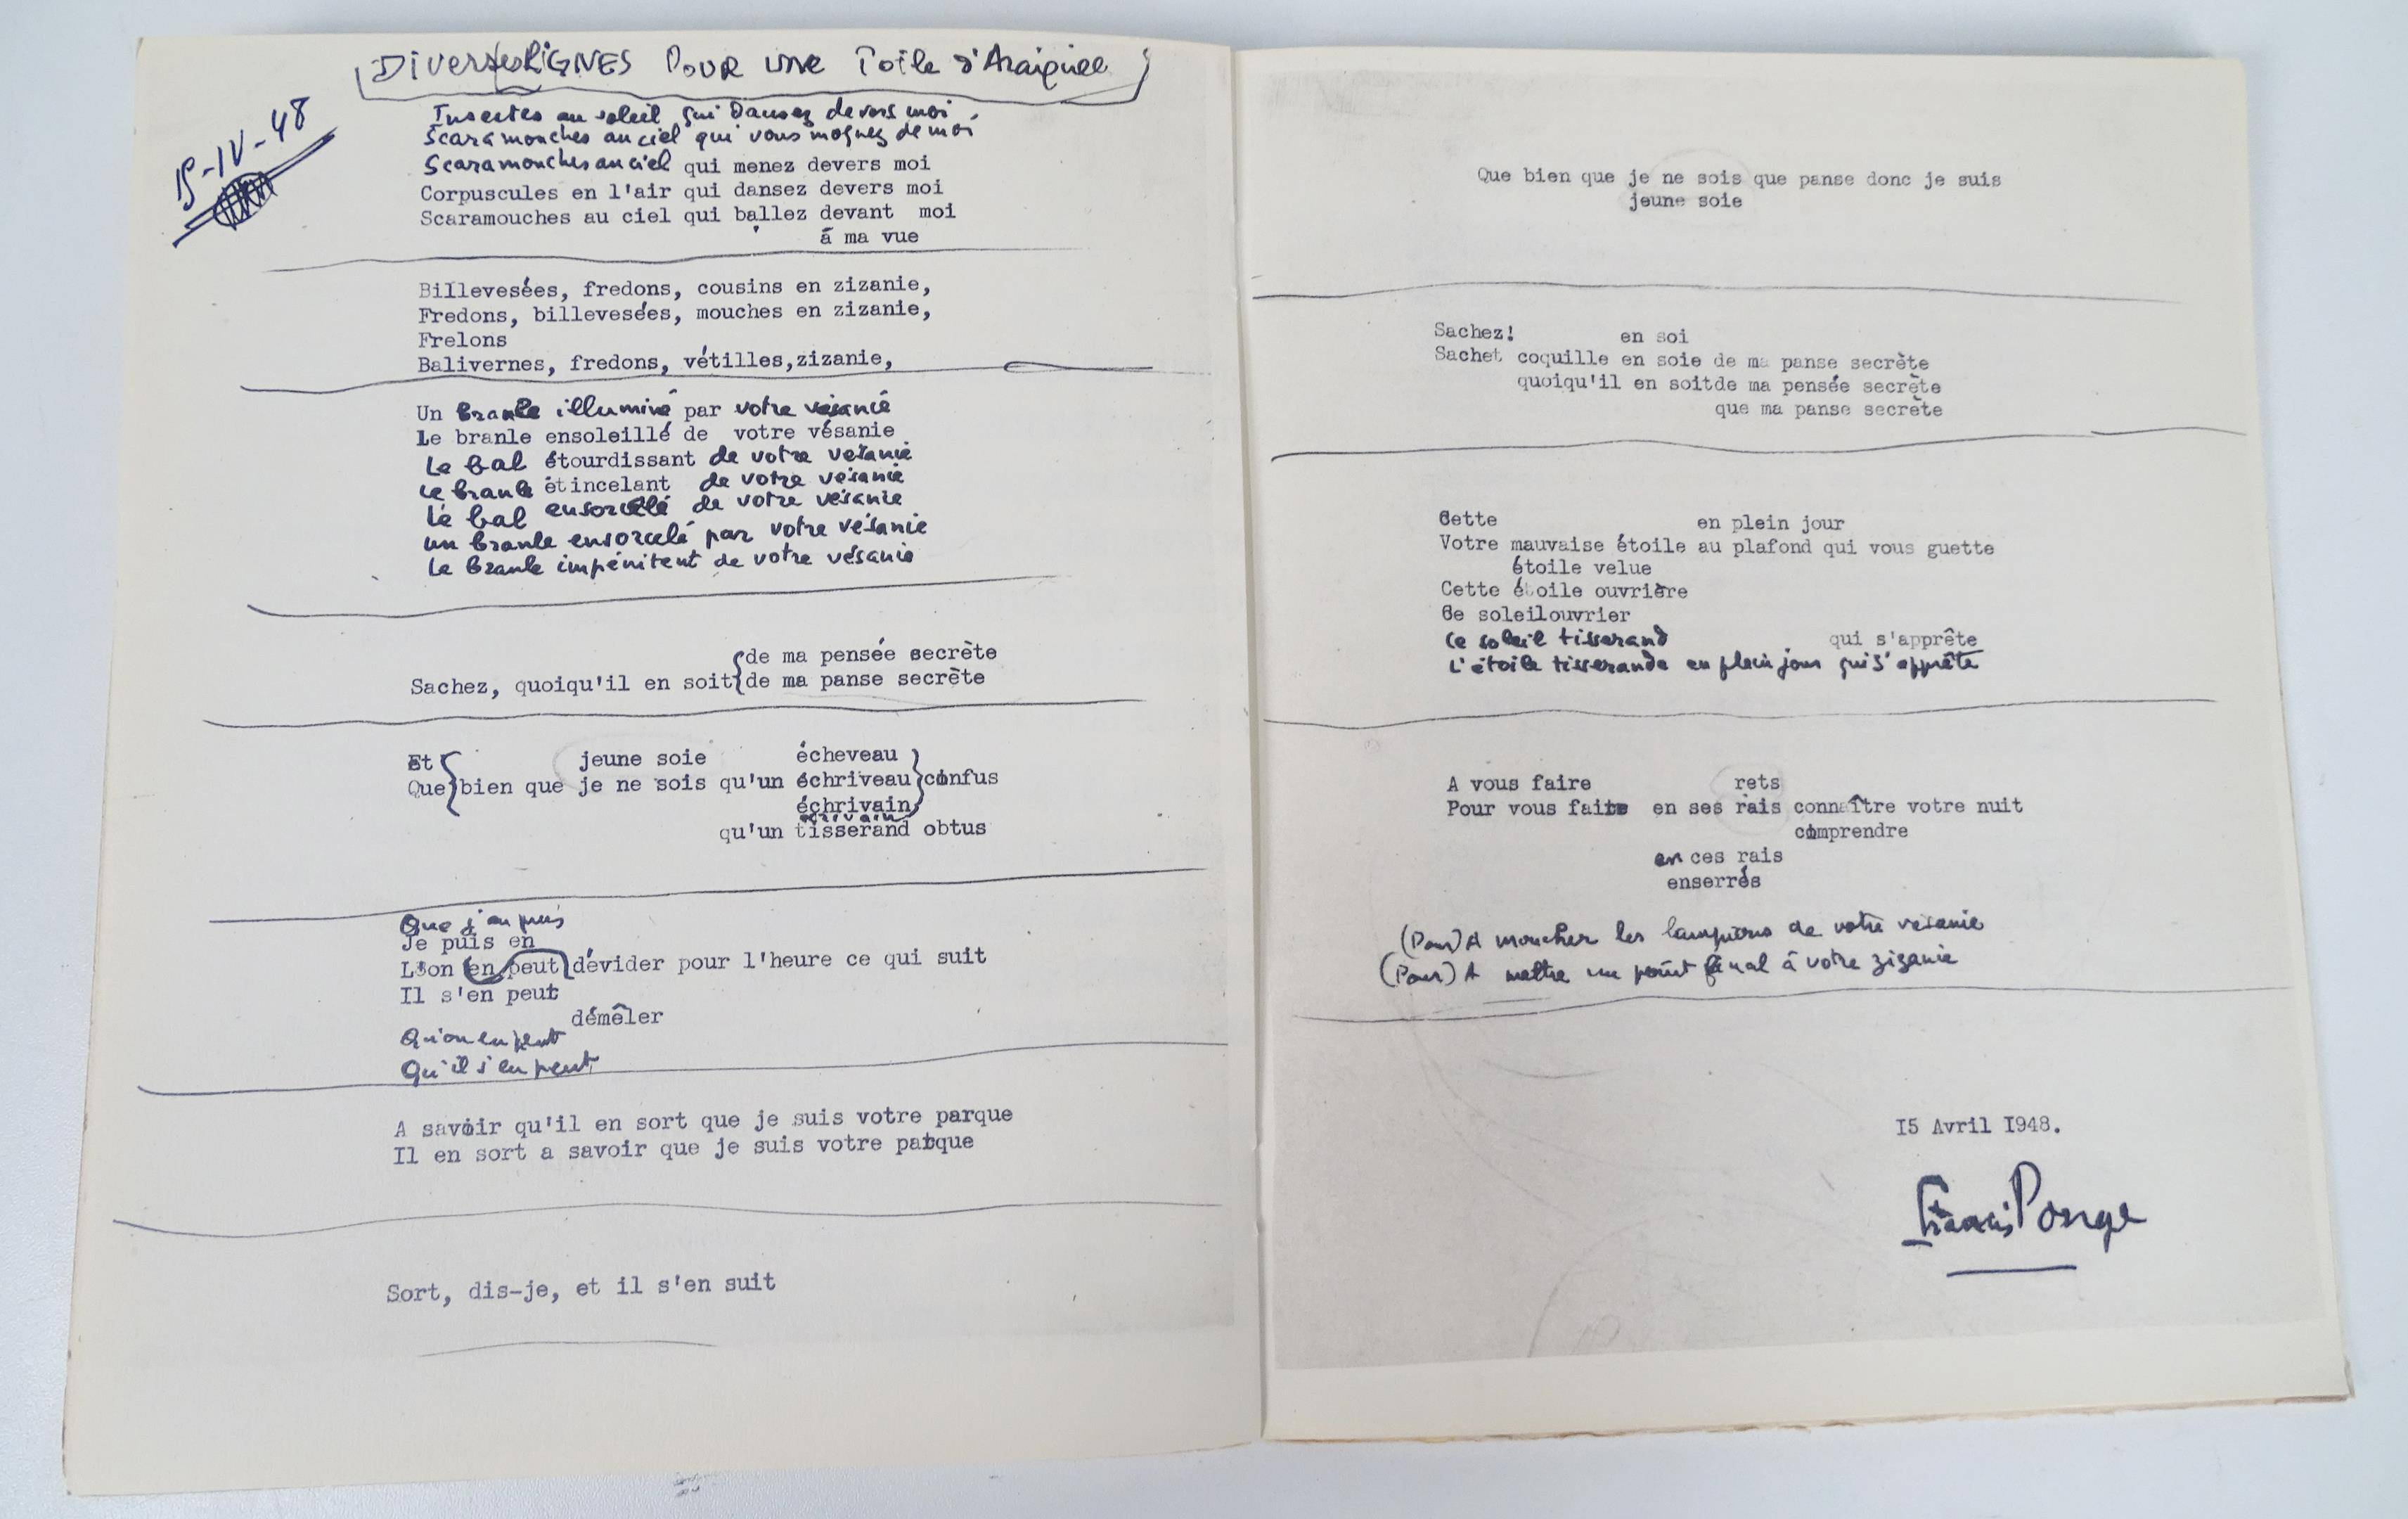 Diverses LIGNES POUR une Toile d'Araignée
15-IV-48
Insectes au soleil qui dansez devers moi
Scaramouches au ciel qui vous moquez de moi
Scaramouches au ciel qui menez devers moi
Corpuscules en l'air qui dansez devers moi
Scaramouches au ciel qui ballez devant moi
à ma vue
Billevesées, fredons, cousins en zizanie,
Fredons, billevesées, mouches en zizanie,
Frelons
Balivernes, fredons, vétilles,zizanie,
Un branle illuminé par votre vésanie
Le branle ensoleillé de votre vésanie
Le bal étourdissant de votre vésanie
Le branle étincelant de votre vésanie
Le bal ensorcelé de votre vésanie
un branle ensorcelé par votre vésanie
Le branle impénitent de votre vésanie
de ma pensée secrète
Sachez, quoiqu'il en soit de ma panse secrète
Et jeune soie écheveau
Que bien que je ne sois qu'un échriveau confus
échrivain
écrivain
qu'un tisserand obtus
Que j'en puis
Je puis en
L'on en peut dévider pour l'heure ce qui suit
Il s'en peut
démêler
Qu'on en peut
Qu'il s'en peut
A savoir qu'il en sort que je suis votre parque
Il en sort a savoir que je suis votre parque
Sort, dis-je, et il s'en suit
Que bien que je ne sois que panse donc je suis
jeune soie
Sachez! en soi
Sachet coquille en soie de ma panse secrète
quoiqu'il en soitde ma pensée secrète
que ma panse secrète
Cette en plein jour
Votre mauvaise étoile au plafond qui vous guette
étoile velue
Cette étoile ouvrière
Ce soleilouvrier
Ce soleil tisserand qui s'apprête
L'étoile tisserande en plein jour qui s'apprête
A vous faire rets
Pour vous faire en ses rais connaître votre nuit
comprendre
en ces rais
enserrés
(Pour) A moucher les lampions de votre vésanie
(Pour) A mettre un point final à votre zizanie
I5 Avril I948.
Francis Ponge